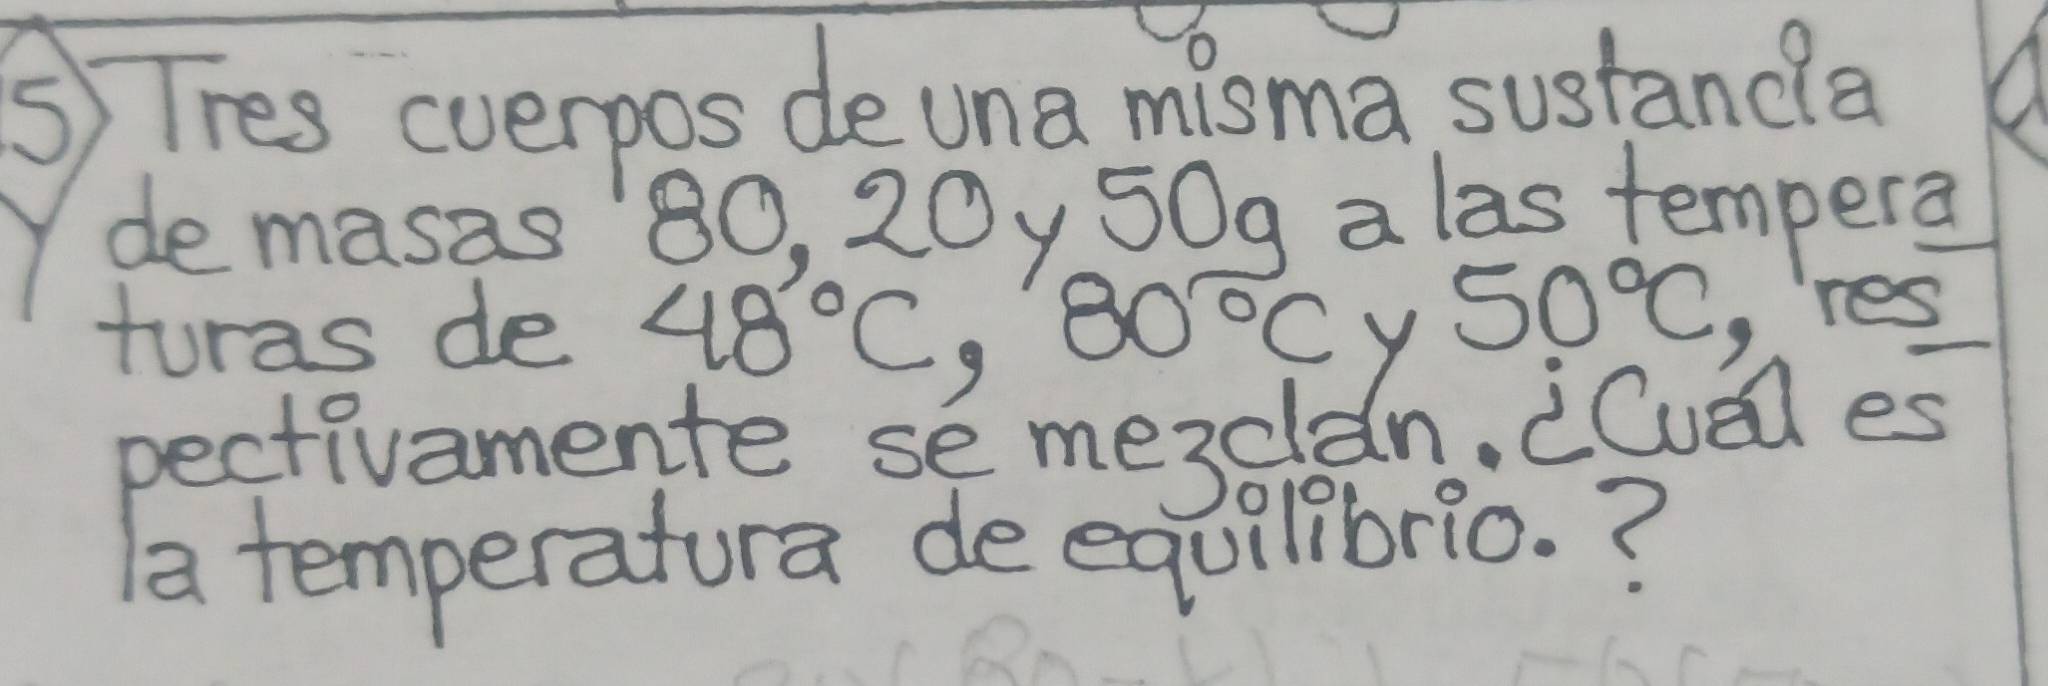 5) Tres cuerpos de una misma sustancia
de masas 80, 20 y 50g a las tempera
turas de 48°C, 80°C y 50°C, res
pectivamente se mezclan. ¿Cuál es
la temperatura de equilibrio.?